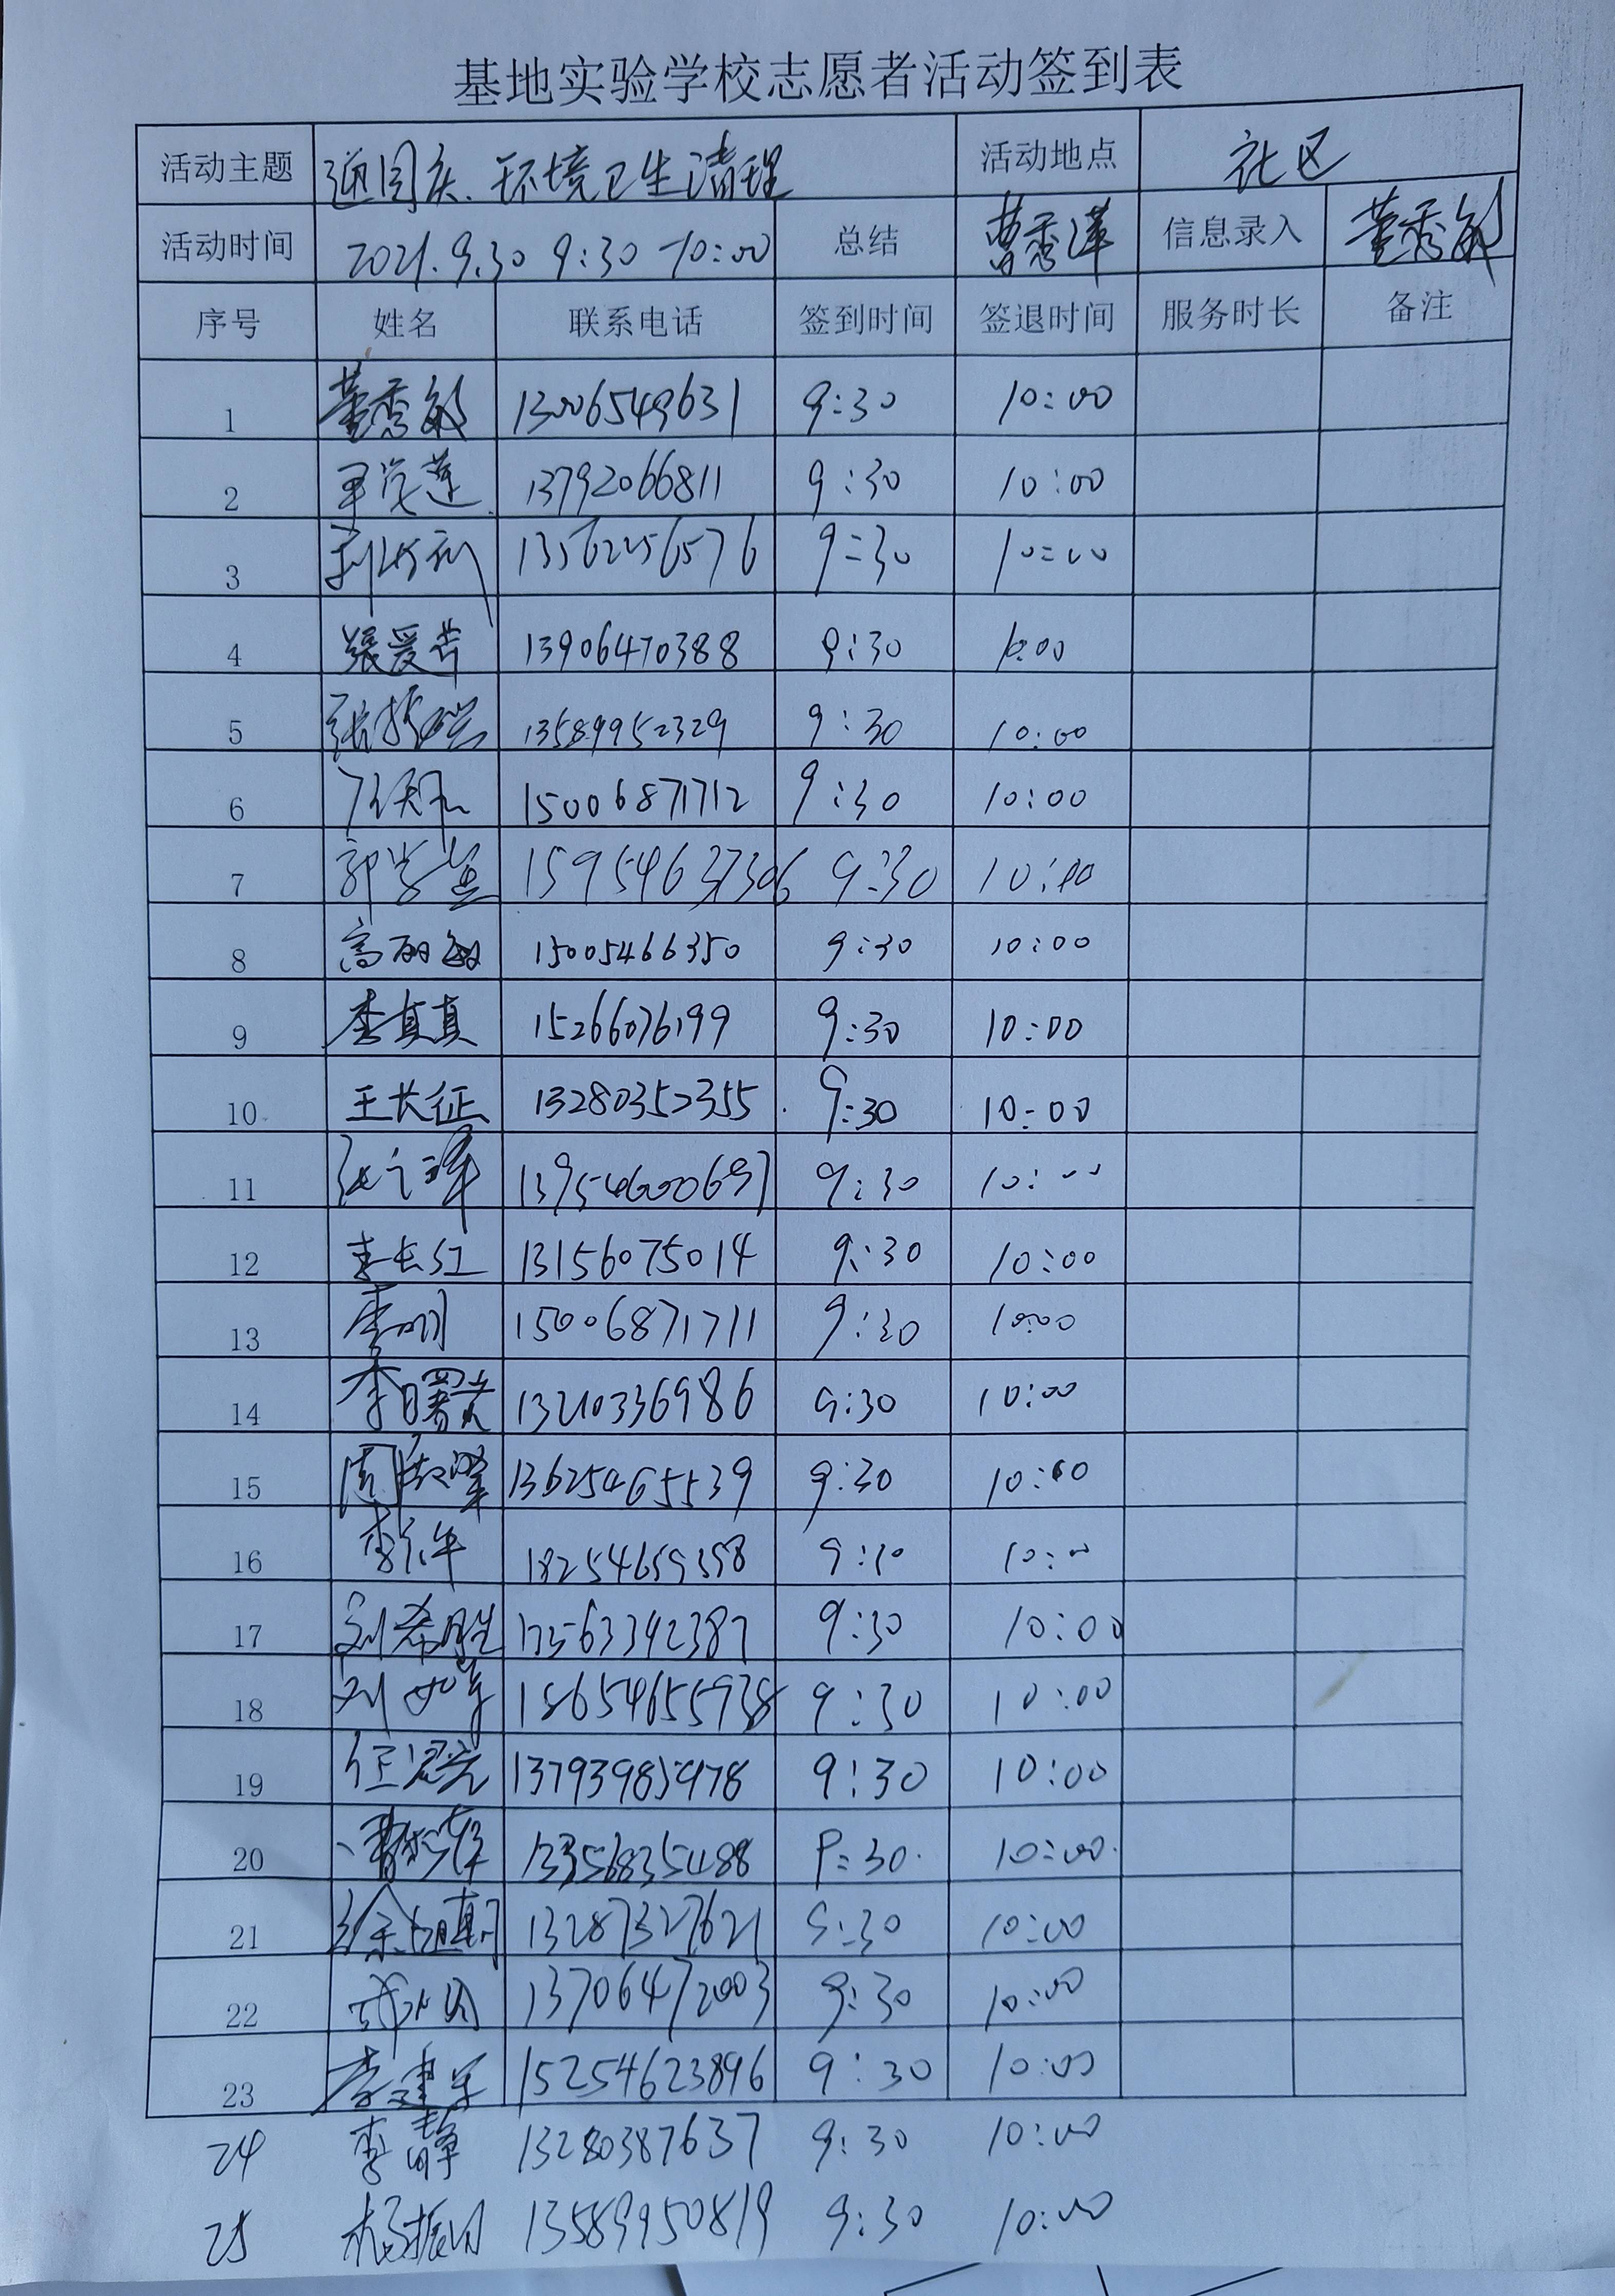 基地实验学校志愿者活动签到表
活动主题 迎国庆、环境卫生清理 活动地点 社区
活动时间 2021.9.30 9:30-10:00 总结 曹秀 信息录入 董秀敏
序号 姓名 联系电话 签到时间 签退时间 服务时长 备注
1 董秀敏 13006549631 9:30 10:00
2 13792066811 9:30 10:00
3 13562256576 9:30 10:00
4 张爱 13906470388 9:30 10:00
5 张 13589952329 9:30 10:00
6 15006871712 9:30 10:00
7 郭 15954637306 9:30 10:00
8 高丽敏 15005466350 9:30 10:00
9 李真真 15266076199 9:30 10:00
10 王长征 13280352355 9:30 10:00
11 9:30 10:00
12 李长红 13156075014 9:30 10:00
13 李明 15006871711 9:30 10:00
14 李曙光 13210336986 9:30 10:00
15 周 13625465539 9:30 10:00
16 李 9:30 10:00
17 刘希胜 17563342387 9:30 10:00
18 刘 18654655938 9:30 10:00
19 任 13793985978 9:30 10:00
20 曹 9:30 10:00
21 徐 13287327621 9:30 10:00
22 13706472003 9:30 10:00
23 李建军 15254623896 9:30 10:00
24 李静 13280387637 9:30 10:00
25 杨振 13589950819 9:30 10:00